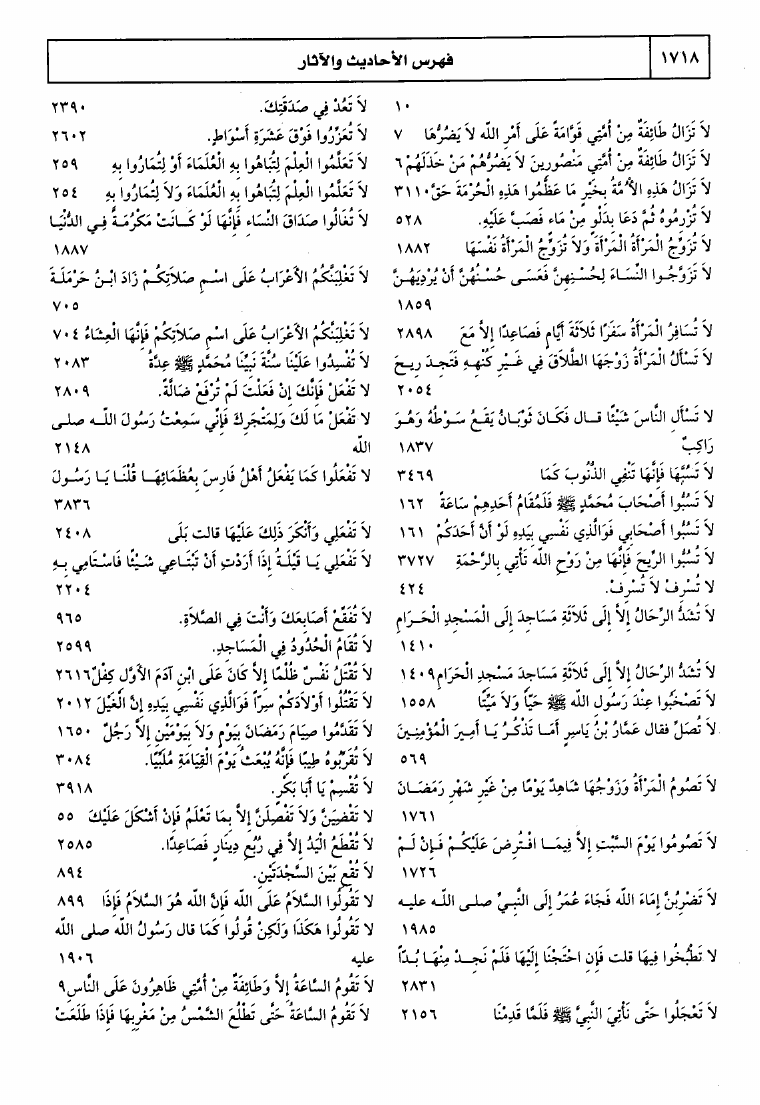 ١٧١٨
فهرس الأحاديث والآثار
١٠
لاَ تَزَالُ طَائِفَةٌ مِنْ أُمَّتِي قَوَّامَةً عَلَى أَمْرِ اللَّهِ لاَ يَضُرُّهَا ٧
لاَ تَزَالُ طَائِفَةٌ مِنْ أُمَّتِي مَنْصُورِينَ لاَ يَضُرُّهُمْ مَنْ خَذَلَهُمْ ٦
لاَ تَزَالُ هَذِهِ الأُمَّةُ بِخَيْرٍ مَا عَظَّمُوا هَذِهِ الْحُرْمَةَ حَقَّ ٣١١٠
لاَ تُزْرِمُوهُ ثُمَّ دَعَا بِدَلْوٍ مِنْ مَاءٍ فَصَبَّ عَلَيْهِ. ٥٢٨
لاَ تُزَوِّجُ الْمَرْأَةُ الْمَرْأَةَ وَلاَ تُزَوِّجُ الْمَرْأَةُ نَفْسَهَا ١٨٨٢
لاَ تَزَوَّجُوا النِّسَاءَ لِحُسْنِهِنَّ فَعَسَى حُسْنُهُنَّ أَنْ يُرْدِيَهُنَّ
١٨٥٩
لاَ تُسَافِرُ الْمَرْأَةُ سَفَرًا ثَلاَثَةَ أَيَّامٍ فَصَاعِدًا إِلاَّ مَعَ ٢٨٩٨
لاَ تَسْأَلُ الْمَرْأَةُ زَوْجَهَا الطَّلاَقَ فِي غَيْرِ كُنْهِهِ فَتَجِدَ رِيحَ
٢٠٥٤
لاَ تَسْأَلِ النَّاسَ شَيْئًا قال فَكَانَ ثَوْبَانُ يَقَعُ سَوْطُهُ وَهُوَ
رَاكِبٌ ١٨٣٧
لاَ تَسُبَّهَا فَإِنَّهَا تَنْفِي الذُّنُوبَ كَمَا ٣٤٦٩
لاَ تَسُبُّوا أَصْحَابَ مُحَمَّدٍ ﷺ فَلَمُقَامُ أَحَدِهِمْ سَاعَةً ١٦٢
لاَ تَسُبُّوا أَصْحَابِي فَوَالَّذِي نَفْسِي بِيَدِهِ لَوْ أَنَّ أَحَدَكُمْ ١٦١
لاَ تَسُبُّوا الرِّيحَ فَإِنَّهَا مِنْ رَوْحِ اللَّهِ تَأْتِي بِالرَّحْمَةِ ٣٧٢٧
لا تُسْرِفْ لاَ تُسْرِفْ. ٤٢٤
لاَ تُشَدُّ الرِّحَالُ إِلاَّ إِلَى ثَلاَثَةِ مَسَاجِدَ إِلَى الْمَسْجِدِ الْحَرَامِ
١٤١٠
لاَ تُشَدُّ الرِّحَالُ إِلاَّ إِلَى ثَلاَثَةِ مَسَاجِدَ مَسْجِدِ الْحَرَامِ ١٤٠٩
لاَ تَصْخَبُوا عِنْدَ رَسُولِ اللَّهِ ﷺ حَيًّا وَلاَ مَيِّتًا ١٥٥٨
لاَ تُصَلِّ فقال عَمَّارُ بْنُ يَاسِرٍ أَمَا تَذْكُرُ يَا أَمِيرَ الْمُؤْمِنِينَ
٥٦٩
لاَ تَصُومُ الْمَرْأَةُ وَزَوْجُهَا شَاهِدٌ يَوْمًا مِنْ غَيْرِ شَهْرِ رَمَضَانَ
١٧٦١
لاَ تَصُومُوا يَوْمَ السَّبْتِ إِلاَّ فِيمَا افْتُرِضَ عَلَيْكُمْ فَإِنْ لَمْ
١٧٢٦
لاَ تَضْرِبُنَّ إِمَاءَ اللَّهِ فَجَاءَ عُمَرُ إِلَى النَّبِيِّ صلى الله عليه
١٩٨٥
لاَ تَطْبُخُوا فِيهَا قلت فَإِنِ احْتَجْنَا إِلَيْهَا فَلَمْ نَجِدْ مِنْهَا بُدًّا
٢٨٣١
لاَ تَعْجَلُوا حَتَّى نَأْتِيَ النَّبِيَّ ﷺ فَلَمَّا قَدِمْنَا ٢١٥٦
لاَ تَعُدْ فِي صَدَقَتِكَ. ٢٣٩٠
لاَ تُعَزِّرُوا فَوْقَ عَشَرَةِ أَسْوَاطٍ. ٢٦٠٢
لاَ تَعَلَّمُوا الْعِلْمَ لِتُبَاهُوا بِهِ الْعُلَمَاءَ أَوْ لِتُمَارُوا بِهِ ٢٥٩
لاَ تَعَلَّمُوا الْعِلْمَ لِتُبَاهُوا بِهِ الْعُلَمَاءَ وَلاَ لِتُمَارُوا بِهِ ٢٥٤
لاَ تُغَالُوا صَدَاقَ النِّسَاءِ فَإِنَّهَا لَوْ كَانَتْ مَكْرُمَةً فِي الدُّنْيَا
١٨٨٧
لاَ تَغْلِبَنَّكُمُ الأَعْرَابُ عَلَى اسْمِ صَلاَتِكُمْ زَادَ ابْنُ حَرْمَلَةَ
٧٠٥
لاَ تَغْلِبَنَّكُمُ الأَعْرَابُ عَلَى اسْمِ صَلاَتِكُمْ فَإِنَّهَا الْعِشَاءُ ٧٠٤
لاَ تُفْسِدُوا عَلَيْنَا سُنَّةَ نَبِيِّنَا مُحَمَّدٍ ﷺ عِدَّةُ ٢٠٨٣
لا تَفْعَلْ فَإِنَّكَ إِنْ فَعَلْتَ لَمْ تُرْفَعْ ضَالَّةٌ. ٢٨٠٩
لاَ تَفْعَلْ مَا لَكَ وَلِمَتْجَرِكَ فَإِنِّي سَمِعْتُ رَسُولَ اللَّه صلى
الله ٢١٤٨
لاَ تَفْعَلُوا كَمَا يَفْعَلُ أَهْلُ فَارِسَ بِعُظَمَائِهَا قُلْنَا يَا رَسُولَ
٣٨٣٦
لاَ تَفْعَلِي وَأَنْكَرَ ذَلِكَ عَلَيْهَا قالت بَلَى ٢٤٠٨
لاَ تَفْعَلِي يَا قَيْلَةُ إِذَا أَرَدْتِ أَنْ تَبْتَاعِي شَيْئًا فَاسْتَامِي بِهِ
٢٢٠٤
لاَ تُفَقِّعْ أَصَابِعَكَ وَأَنْتَ فِي الصَّلاَةِ. ٩٦٥
لاَ تُقَامُ الْحُدُودُ فِي الْمَسَاجِدِ. ٢٥٩٩
لاَ تُقْتَلُ نَفْسٌ ظُلْمًا إِلاَّ كَانَ عَلَى ابْنِ آدَمَ الأَوَّلِ كِفْلٌ ٢٦١٦
لاَ تَقْتُلُوا أَوْلاَدَكُمْ سِرًّا فَوَالَّذِي نَفْسِي بِيَدِهِ إِنَّ الْغَيْلَ ٢٠١٢
لاَ تَقَدَّمُوا صِيَامَ رَمَضَانَ بِيَوْمٍ وَلاَ بِيَوْمَيْنِ إِلاَّ رَجُلٌ ١٦٥٠
لاَ تُقَرِّبُوهُ طِيبًا فَإِنَّهُ يُبْعَثُ يَوْمَ الْقِيَامَةِ مُلَبِّيًا. ٣٠٨٤
لاَ تُقْسِمْ يَا أَبَا بَكْرٍ. ٣٩١٨
لا تَقْضِيَنَّ وَلاَ تَفْصِلَنَّ إِلاَّ بِمَا تَعْلَمُ فَإِنْ أَشْكَلَ عَلَيْكَ ٥٥
لاَ تُقْطَعُ الْيَدُ إِلاَّ فِي رُبُعِ دِينَارٍ فَصَاعِدًا. ٢٥٨٥
لاَ تُقْعِ بَيْنَ السَّجْدَتَيْنِ. ٨٩٤
لاَ تَقُولُوا السَّلاَمُ عَلَى اللَّهِ فَإِنَّ اللَّهَ هُوَ السَّلاَمُ فَإِذَا ٨٩٩
لا تَقُولُوا هَكَذَا وَلَكِنْ قُولُوا كَمَا قال رَسُولُ اللَّه صلى الله
عليه ١٩٠٦
لاَ تَقُومُ السَّاعَةُ إِلاَّ وَطَائِفَةٌ مِنْ أُمَّتِي ظَاهِرُونَ عَلَى النَّاسِ ٩
لاَ تَقُومُ السَّاعَةُ حَتَّى تَطْلُعَ الشَّمْسُ مِنْ مَغْرِبِهَا فَإِذَا طَلَعَتْ